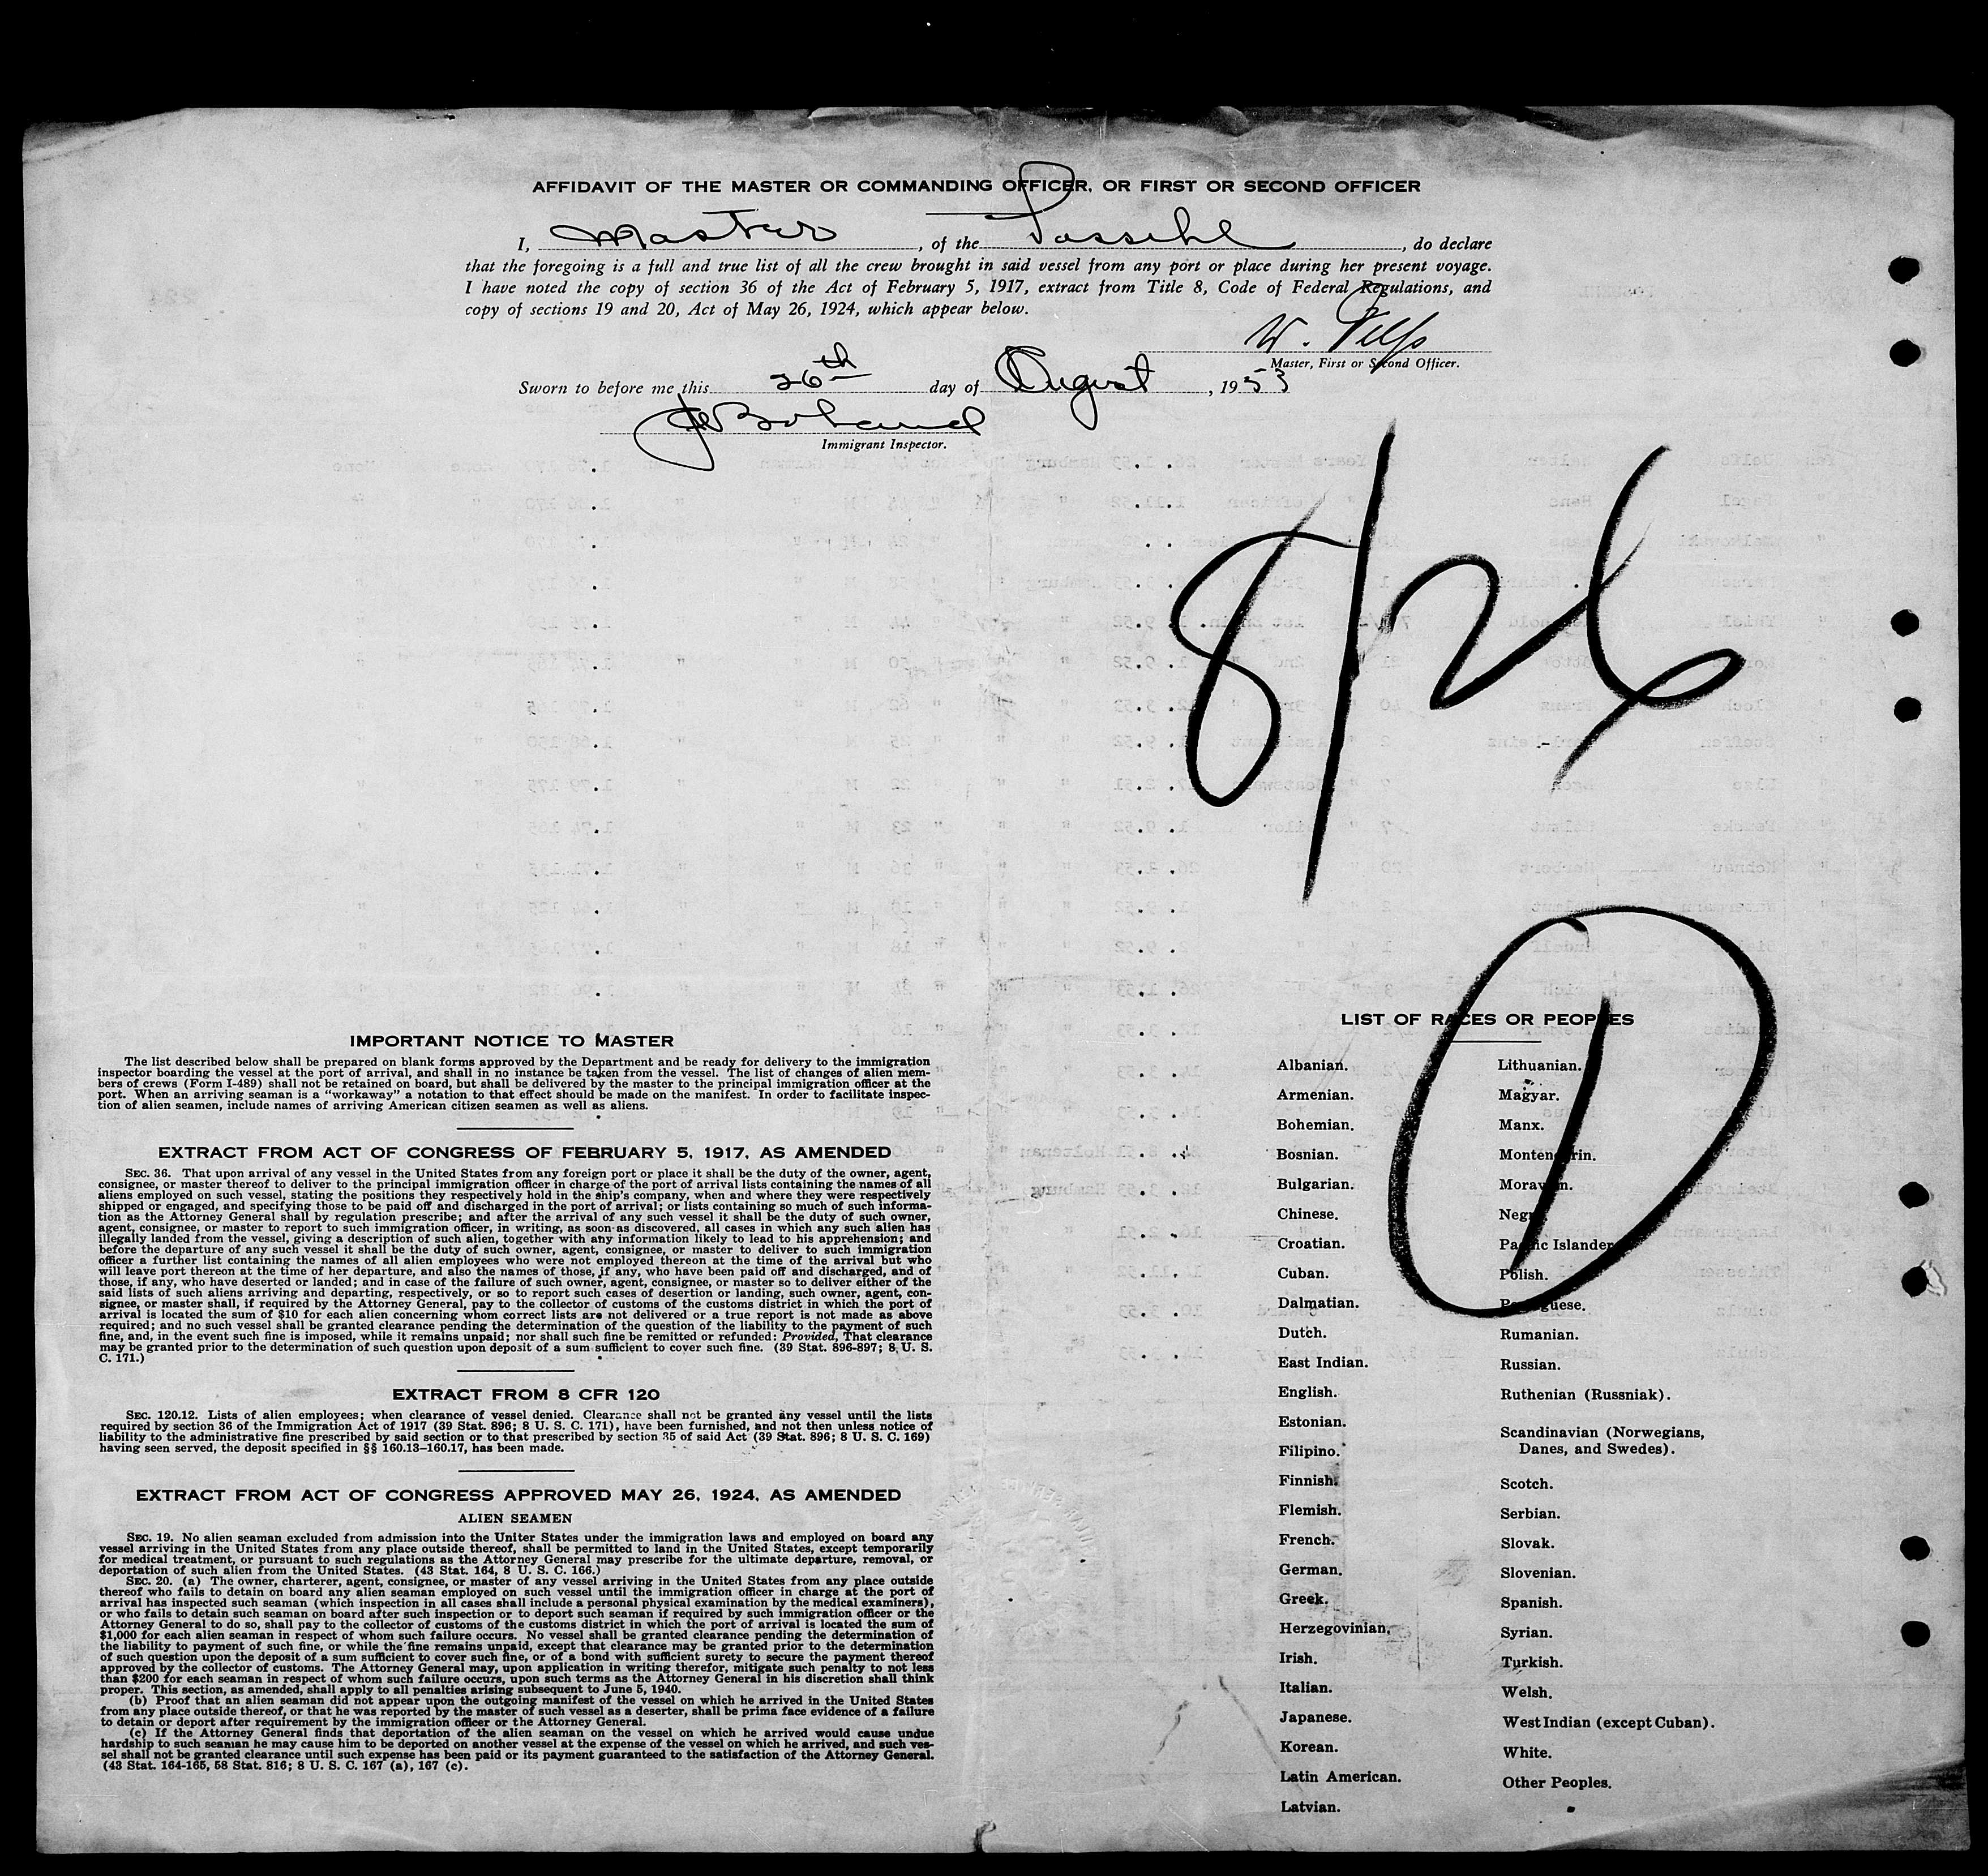 AFFIDAVIT OF THE MASTER OR COMMANDING OFFICER, OR FIRST OR SECOND OFFICER
I, Master, of the Possehl, do declare
that the foregoing is a full and true list of all the crew brought in said vessel from any port or place during her present voyage.
I have noted the copy of section 36 of the Act of February 5, 1917, extract from Title 8, Code of Federal Regulations, and
copy of sections 19 and 20, Act of May 26, 1924, which appear below.
W.
Master, First or Second Officer.
Sworn to before me this 26th day of August, 1953
Immigrant Inspector.
8/26
1
IMPORTANT NOTICE TO MASTER
The list described below shall be prepared on blank forms approved by the Department and be ready for delivery to the immigration
inspector boarding the vessel at the port of arrival, and shall in no instance be taken from the vessel. The list of changes of alien mem-
bers of crews (Form I-489) shall not be retained on board, but shall be delivered by the master to the principal immigration officer at the
port. When an arriving seaman is a "workaway" a notation to that effect should be made on the manifest. In order to facilitate inspec-
tion of alien seamen, include names of arriving American citizen seamen as well as aliens.
EXTRACT FROM ACT OF CONGRESS OF FEBRUARY 5, 1917, AS AMENDED
SEC. 36. That upon arrival of any vessel in the United States from any foreign port or place it shall be the duty of the owner, agent,
consignee, or master thereof to deliver to the principal immigration officer in charge of the port of arrival lists containing the names of all
aliens employed on such vessel, stating the positions they respectively hold in the ship's company, when and where they were respectively
shipped or engaged, and specifying those to be paid off and discharged in the port of arrival; or lists containing so much of such informa-
tion as the Attorney General shall by regulation prescribe; and after the arrival of any such vessel it shall be the duty of such owner,
agent, consignee, or master to report to such immigration officer, in writing, as soon as discovered, all cases in which any such alien has
illegally landed from the vessel, giving a description of such alien, together with any information likely to lead to his apprehension; and
before the departure of any such vessel it shall be the duty of such owner, agent, consignee, or master to deliver to such immigration
officer a further list containing the names of all alien employees who were not employed thereon at the time of the arrival but who
will leave port thereon at the time of her departure, and also the names of those, if any, who have been paid off and discharged, and of
those, if any, who have deserted or landed; and in case of the failure of such owner, agent, consignee, or master so to deliver either of the
said lists of such aliens arriving and departing, respectively, or so to report such cases of desertion or landing, such owner, agent, con-
signee, or master shall, if required by the Attorney General, pay to the collector of customs of the customs district in which the port of
arrival is located the sum of $10 for each alien concerning whom correct lists are not delivered or a true report is not made as above
required; and no such vessel shall be granted clearance pending the determination of the question of the liability to the payment of such
fine, and, in the event such fine is imposed, while it remains unpaid; nor shall such fine be remitted or refunded: Provided, That clearance
may be granted prior to the determination of such question upon deposit of a sum sufficient to cover such fine. (39 Stat. 896-897; 8 U. S.
C. 171.)
EXTRACT FROM 8 CFR 120
SEC. 120.12. Lists of alien employees; when clearance of vessel denied. Clearance shall not be granted any vessel until the lists
required by section 36 of the Immigration Act of 1917 (39 Stat. 896; 8 U. S. C. 171), have been furnished, and not then unless notice of
liability to the administrative fine prescribed by said section or to that prescribed by section 35 of said Act (39 Stat. 896; 8 U. S. C. 169)
having seen served, the deposit specified in §§ 160.13-160.17, has been made.
EXTRACT FROM ACT OF CONGRESS APPROVED MAY 26, 1924, AS AMENDED
ALIEN SEAMEN
SEC. 19. No alien seaman excluded from admission into the Uniter States under the immigration laws and employed on board any
vessel arriving in the United States from any place outside thereof, shall be permitted to land in the United States, except temporarily
for medical treatment, or pursuant to such regulations as the Attorney General may prescribe for the ultimate departure, removal, or
deportation of such alien from the United States. (43 Stat. 164, 8 U. S. C. 166.)
SEC. 20. (a) The owner, charterer, agent, consignee, or master of any vessel arriving in the United States from any place outside
thereof who fails to detain on board any alien seaman employed on such vessel until the immigration officer in charge at the port of
arrival has inspected such seaman (which inspection in all cases shall include a personal physical examination by the medical examiners),
or who fails to detain such seaman on board after such inspection or to deport such seaman if required by such immigration officer or the
Attorney General to do so, shall pay to the collector of customs of the customs district in which the port of arrival is located the sum of
$1,000 for each alien seaman in respect of whom such failure occurs. No vessel shall be granted clearance pending the determination of
the liability to payment of such fine, or while the fine remains unpaid, except that clearance may be granted prior to the determination
of such question upon the deposit of a sum sufficient to cover such fine, or of a bond with sufficient surety to secure the payment thereof
approved by the collector of customs. The Attorney General may, upon application in writing therefor, mitigate such penalty to not less
than $200 for each seaman in respect of whom such failure occurs, upon such terms as the Attorney General in his discretion shall think
proper. This section, as amended, shall apply to all penalties arising subsequent to June 5, 1940.
(b) Proof that an alien seaman did not appear upon the outgoing manifest of the vessel on which he arrived in the United States
from any place outside thereof, or that he was reported by the master of such vessel as a deserter, shall be prima face evidence of a failure
to detain or deport after requirement by the immigration officer or the Attorney General.
(c) If the Attorney General finds that deportation of the alien seaman on the vessel on which he arrived would cause undue
hardship to such seaman he may cause him to be deported on another vessel at the expense of the vessel on which he arrived, and such ves-
sel shall not be granted clearance until such expense has been paid or its payment guaranteed to the satisfaction of the Attorney General.
(43 Stat. 164-165, 58 Stat. 816; 8 U. S. C. 167 (a), 167 (c).
LIST OF RACES OR PEOPLES
Albanian.
Armenian.
Bohemian.
Bosnian.
Bulgarian.
Chinese.
Croatian.
Cuban.
Dalmatian.
Dutch.
East Indian.
English.
Estonian.
Filipino.
Finnish.
Flemish.
French.
German.
Greek.
Herzegovinian.
Irish.
Italian.
Japanese.
Korean.
Latin American.
Latvian.
Lithuanian.
Magyar.
Manx.
Montenegrin.
Moravian.
Negro.
Pacific Islander.
Polish.
Portuguese.
Rumanian.
Russian.
Ruthenian (Russniak).
Scandinavian (Norwegians,
Danes, and Swedes).
Scotch.
Serbian.
Slovak.
Slovenian.
Spanish.
Syrian.
Turkish.
Welsh.
West Indian (except Cuban).
White.
Other Peoples.